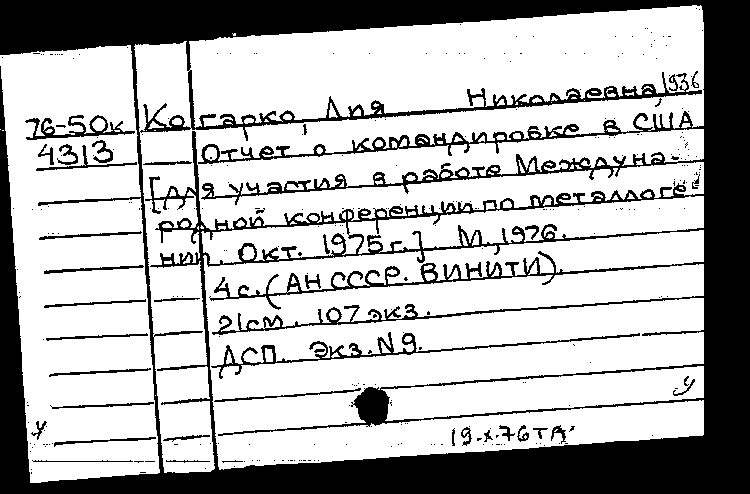 76-50к Когарко, Лия Николаевна, 1936
4313 Отчет о командировке в США
[для участия в работе Междуна-
родной конференции по металлоге-
нии. Окт. 1975 г.] М., 1976.
4 с. (АН СССР. ВИНИТИ).
21 см. 107 экз.
ДСП. Экз. N 9.
у
у
19-X-76 ТА